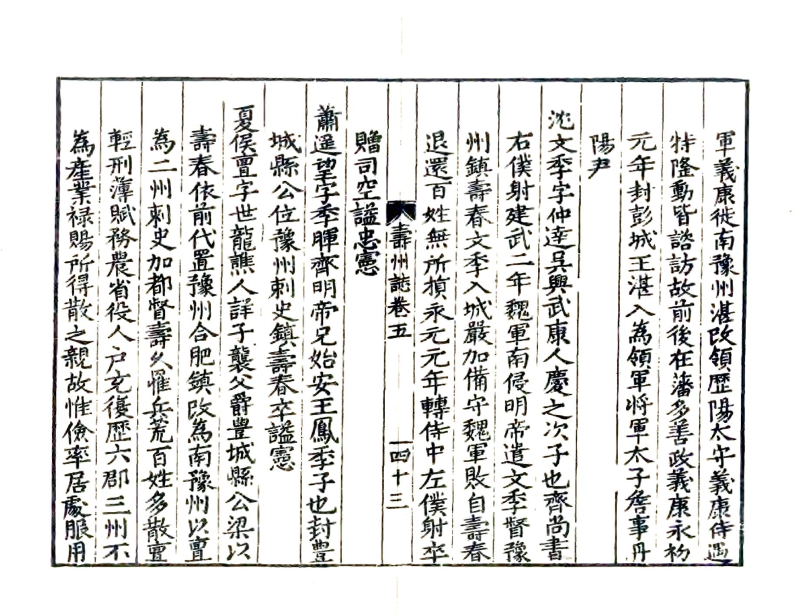 軍義康徙南豫州湛改領歷陽太守義康侍遇
特隆動皆諮訪故前後在藩多善政義康永初
元年封彭城王湛入為領軍将軍太子詹事丹
陽尹
沈文季字仲逹吳興武康人慶之次子也齊尚書
右僕射建武二年魏軍南侵明帝遣文季督豫
州鎮壽春文季入城嚴加備守魏軍敗自壽春
退還百姓無所損永元元年轉侍中左僕射卒
壽州誌卷五
一四十三
贈司空謚忠憲
蕭遥望字季暉齊明帝兄始安王鳳季子也封豐
城縣公位豫州刺史鎮壽春卒謚憲
夏侯亶字世龍譙人詳子襲父爵豐城縣公梁以
壽春依前代置豫州合肥鎮改為南豫州以亶
為二州刺史加都督壽久罹兵荒百姓多散亶
輕刑薄賦務農省役人户充復歷六郡三州不
為產業禄賜所得散之親故惟儉率居處服用